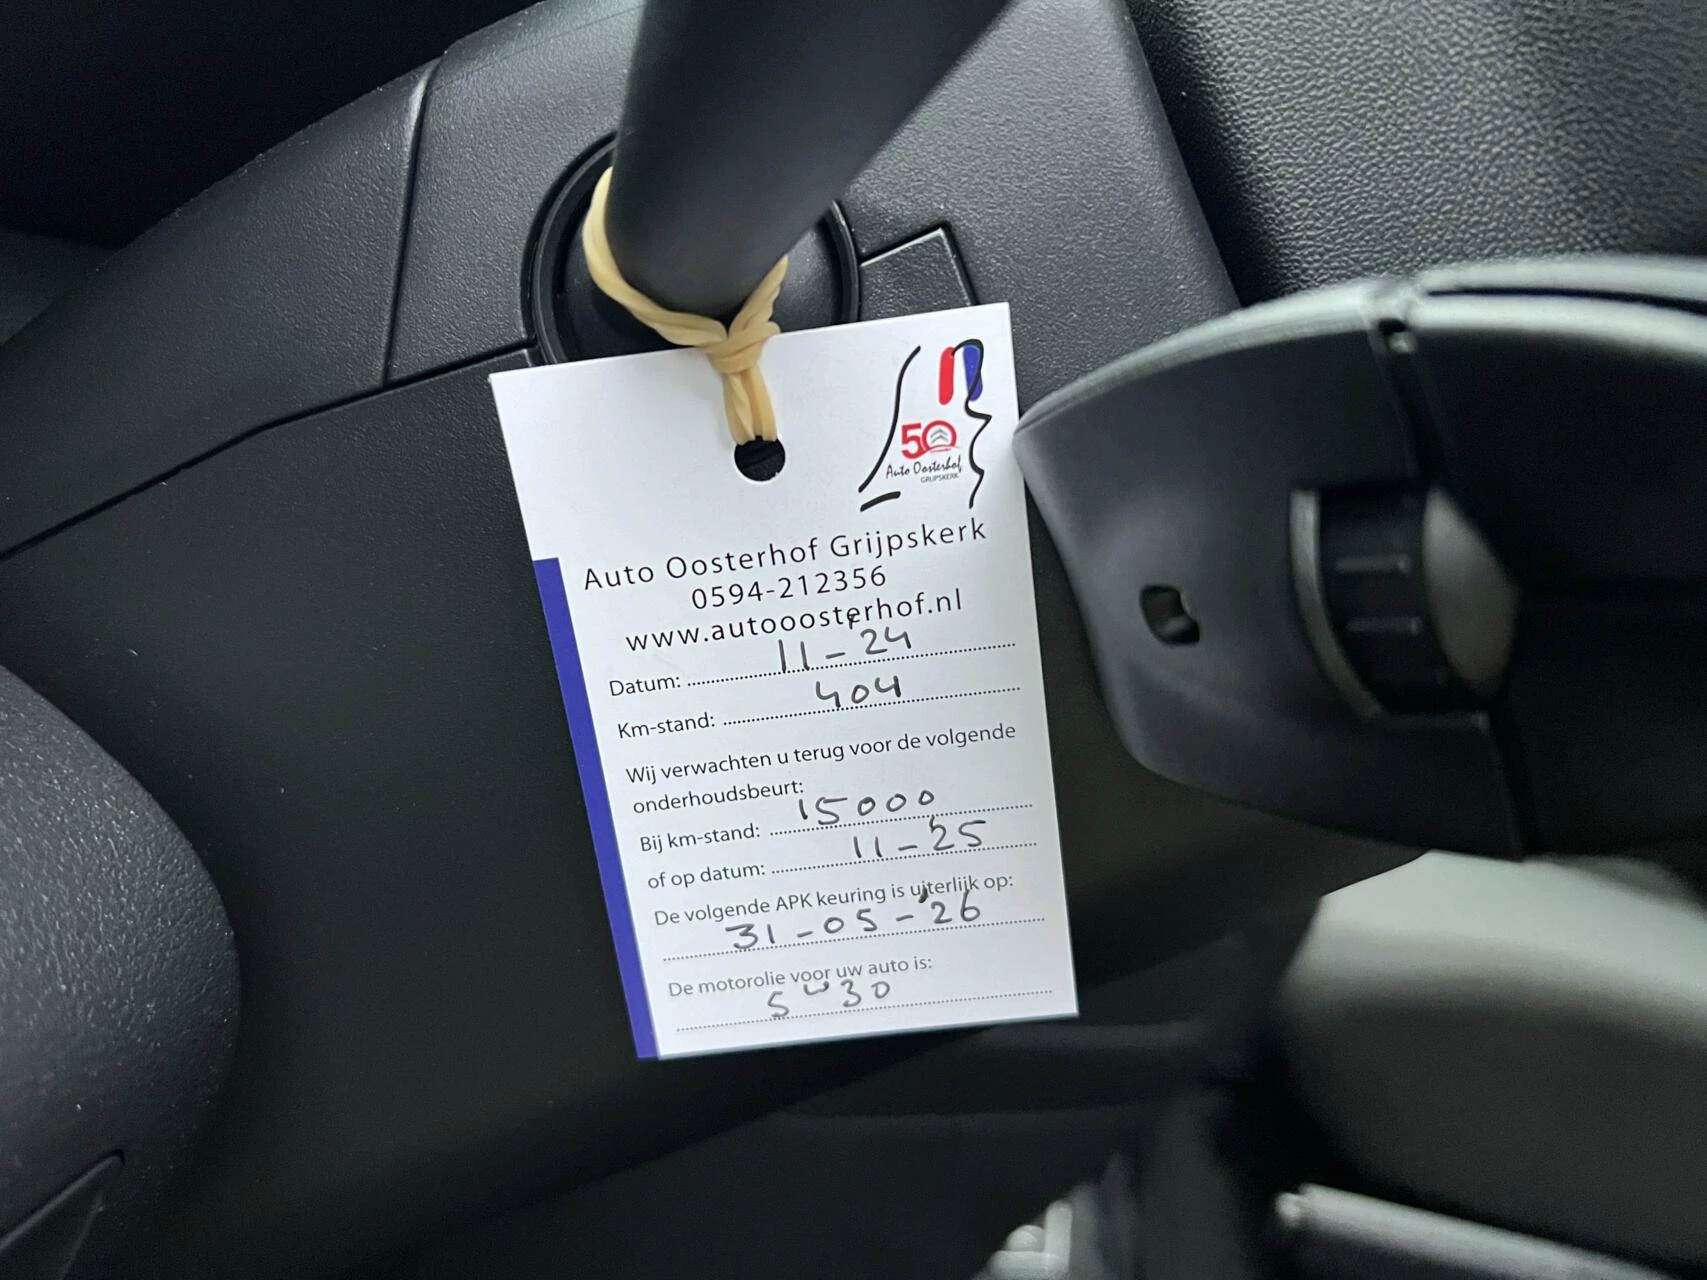 50
Auto Oosterhof
GRIJPSKERK
Auto Oosterhof Grijpskerk
0594-212356
www.autooosterhof.nl
Datum: 11-24
Km-stand: 404
Wij verwachten u terug voor de volgende
onderhoudsbeurt:
Bij km-stand: 15000
of op datum: 11-'25
De volgende APK keuring is uiterlijk op:
31-05-'26
De motorolie voor uw auto is:
5w30